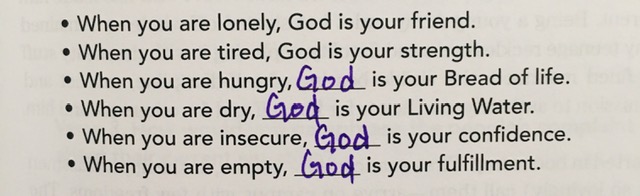 • When you are lonely, God is your friend.
• When you are tired, God is your strength.
• When you are hungry, God is your Bread of life.
• When you are dry, God is your Living Water.
• When you are insecure, God is your confidence.
• When you are empty, God is your fulfillment.